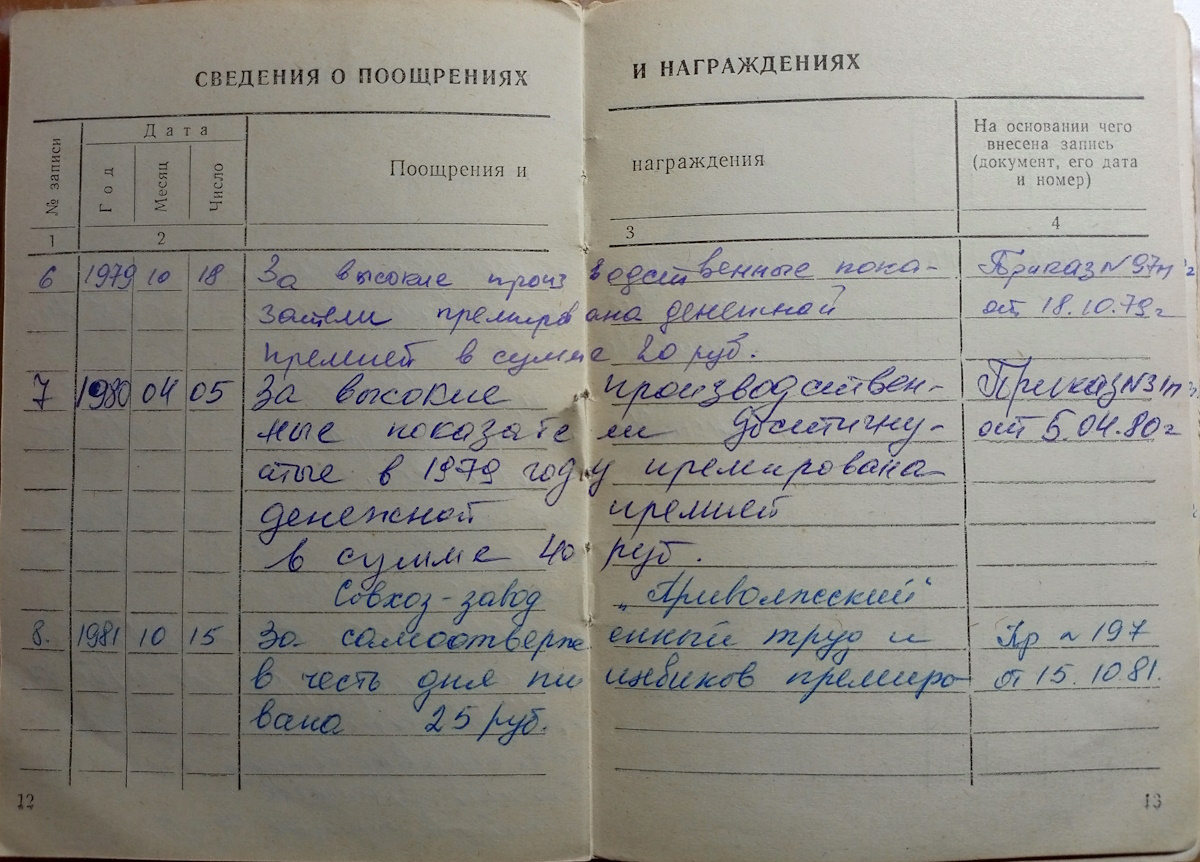 СВЕДЕНИЯ О ПООЩРЕНИЯХ И НАГРАЖДЕНИЯХ
№ записи
Дата
Год
Месяц
Число
Поощрения и награждения
На основании чего
внесена запись
(документ, его дата
и номер)
1 2 3 4
6 1979 10 18 За высокие производственные пока- Приказ N 97п
затели премирована денежной от 18.10.79 г
премией в сумме 20 руб.
7 1980 04 05 За высокие производствен- Приказ N 31п
ные показатели достигну- от 5.04.80 г
атые в 1979 году премирована
денежной премией
в сумме 40 руб.
Совхоз-завод „Приволжский"
8. 1981 10 15 За самоотверженный труд и Пр ~ 197
в честь дня пищевиков премиро- от 15.10.81.
вана 25 руб.
12 13